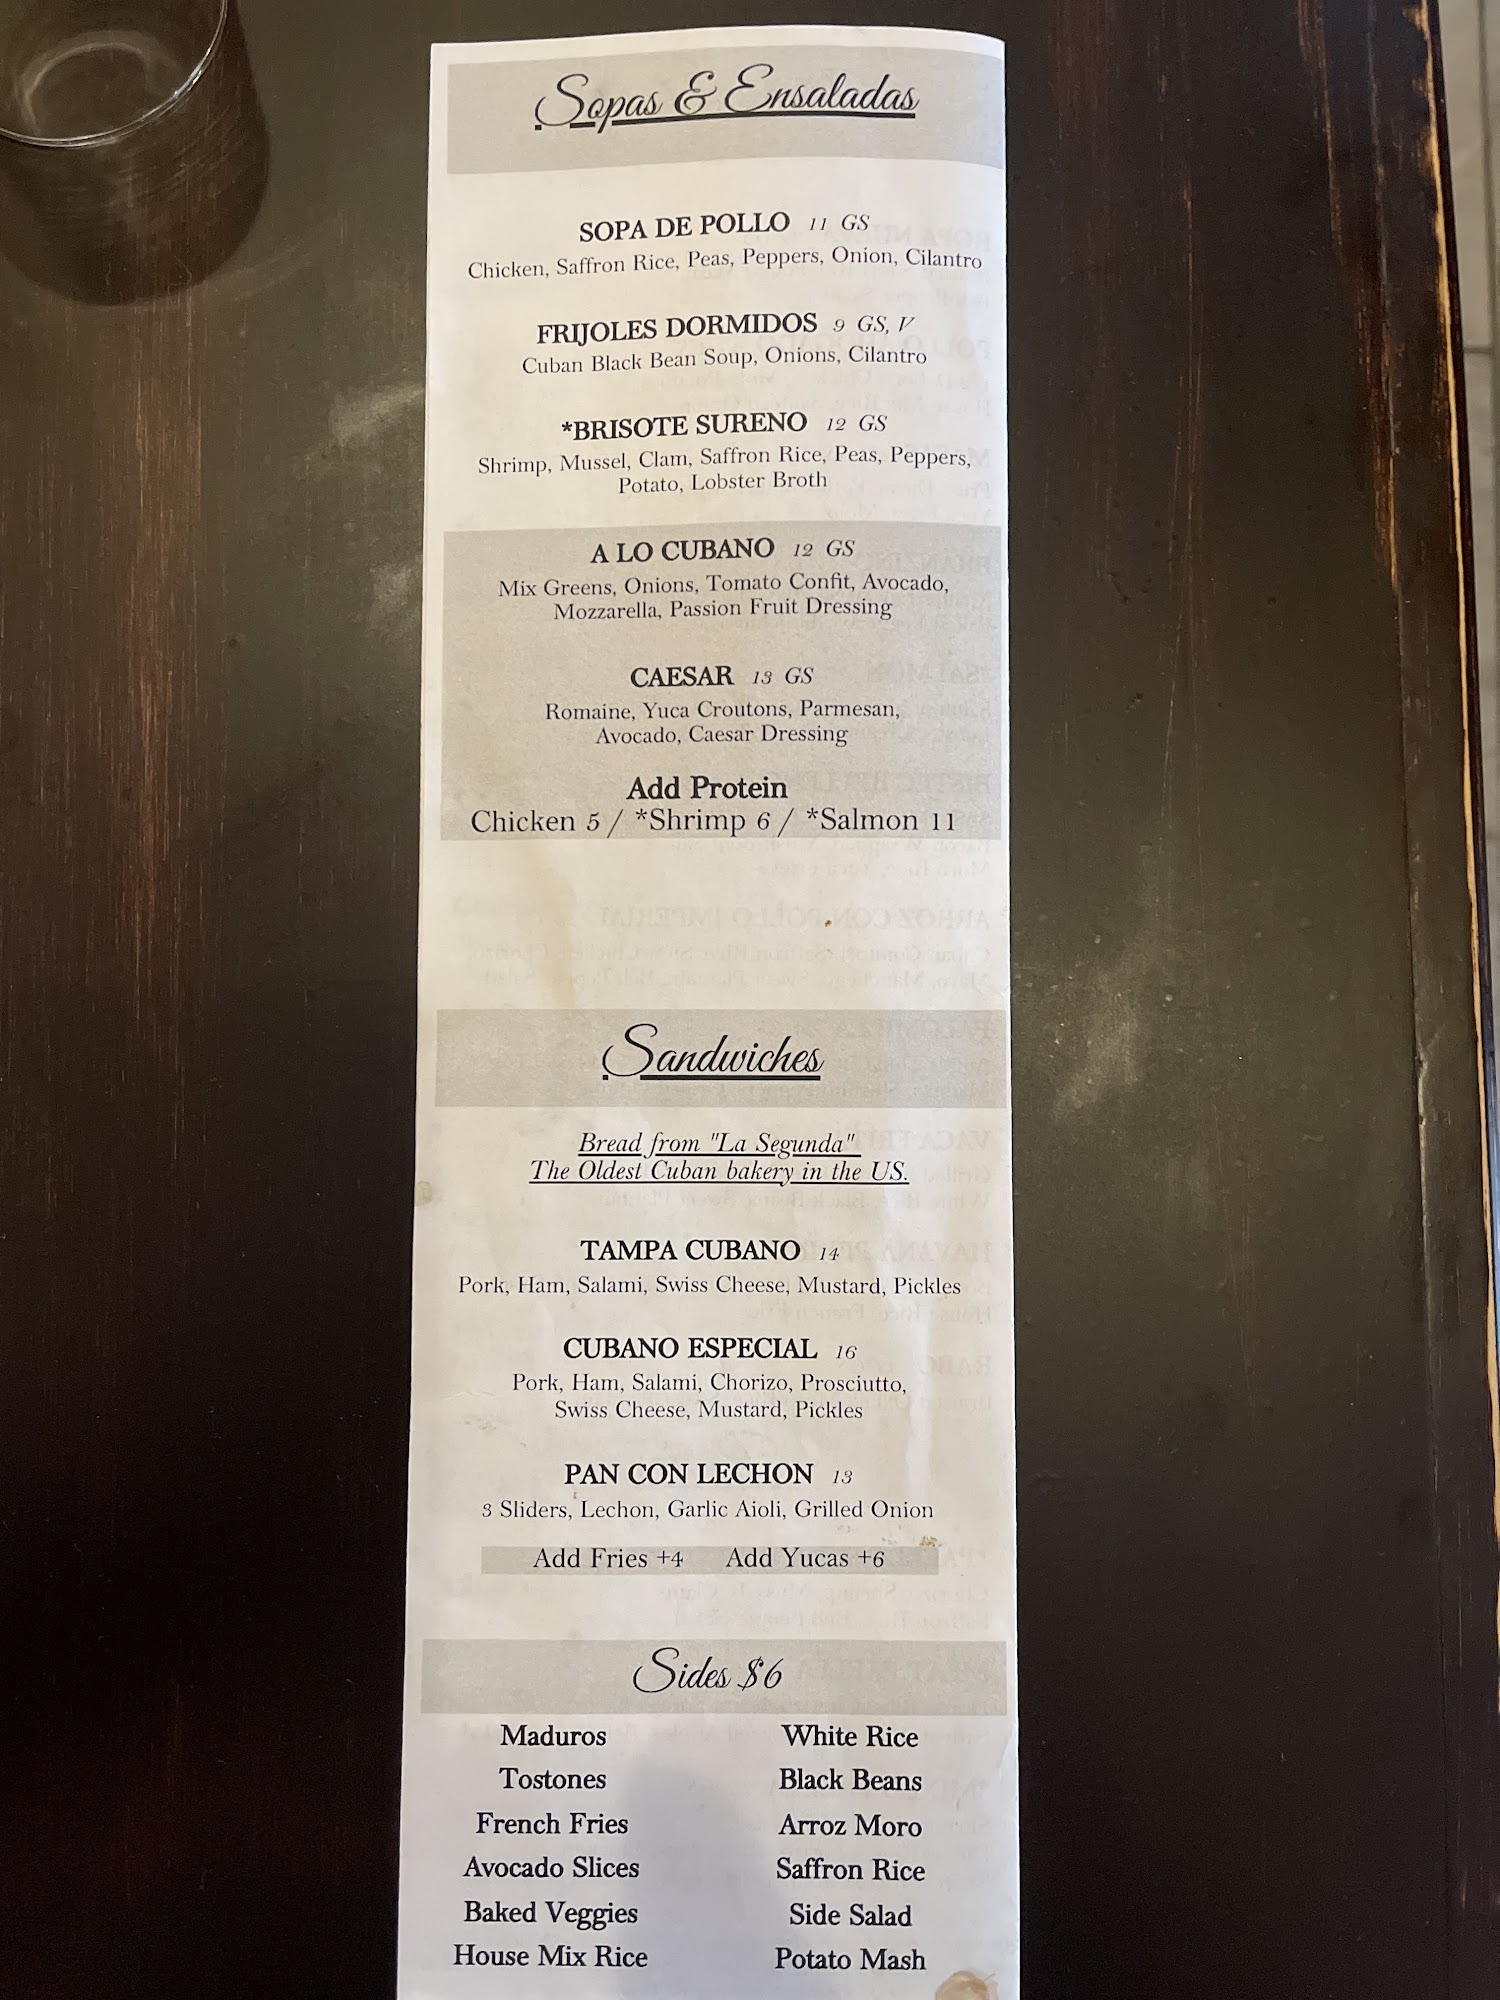 Sopas & Ensaladas
SOPA DE POLLO 11 GS
Chicken, Saffron Rice, Peas, Peppers, Onion, Cilantro
FRIJOLES DORMIDOS 9 GS, V
Cuban Black Bean Soup, Onions, Cilantro
*BRISOTE SURENO 12 GS
Shrimp, Mussel, Clam, Saffron Rice, Peas, Peppers,
Potato, Lobster Broth
A LO CUBANO 12 GS
Mix Greens, Onions, Tomato Confit, Avocado,
Mozzarella, Passion Fruit Dressing
CAESAR 13 GS
Romaine, Yuca Croutons, Parmesan,
Avocado, Caesar Dressing
Add Protein
Chicken 5 / *Shrimp 6 / *Salmon 11
Sandwiches
Bread from "La Segunda"
The Oldest Cuban bakery in the US.
TAMPA CUBANO 14
Pork, Ham, Salami, Swiss Cheese, Mustard, Pickles
CUBANO ESPECIAL 16
Pork, Ham, Salami, Chorizo, Prosciutto,
Swiss Cheese, Mustard, Pickles
PAN CON LECHON 13
3 Sliders, Lechon, Garlic Aioli, Grilled Onion
Add Fries +4 Add Yucas +6
Sides $6
Maduros White Rice
Tostones Black Beans
French Fries Arroz Moro
Avocado Slices Saffron Rice
Baked Veggies Side Salad
House Mix Rice Potato Mash